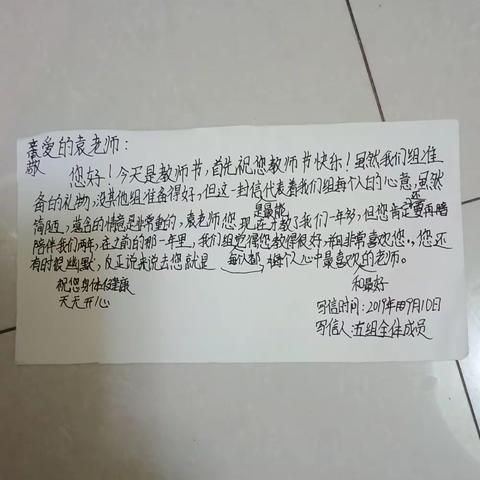 亲爱的袁老师：
敬
您好！今天是教师节，首先祝您教师节快乐！虽然我们组准
备的礼物，没其他组准备得好，但这一封信代表着我们组每个人的心意，虽然
是最能
还
简陋，蕴含的情意是非常重的，袁老师您现在才教了我们一年多，但您肯定要再陪
陪伴我们两年，在之前的那一年里，我们组觉得您教得很好，并且非常喜欢您，您还
有时很幽默，反正说来说去您就是每个人心中最喜欢的老师。
和最好
祝您身体健康
天天开心
写信时间：2019年9月10日
写信人：五组全体成员